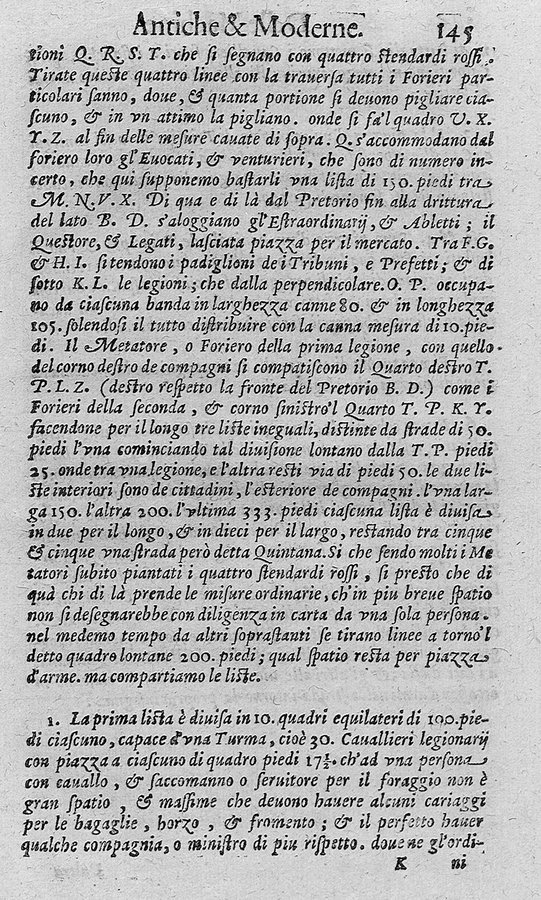 Antiche & Moderne. 145
tioni Q. R. S. T. che si segnano con quattro stendardi rossi.
Tirate queste quattro linee con la trauersa tutti i Forieri par-
ticolari sanno, doue, & quanta portione si deuono pigliare cia-
scuno, & in vn attimo la pigliano. onde si fa'l quadro V. X.
Y. Z. al fin delle mesure cauate di sopra. Q. s'accommodano dal
foriero loro gl'Euocati, & venturieri, che sono di numero in-
certo, che qui supponemo bastarli vna lista di 150. piedi tra
M. N. V. X. Di qua e di là dal Pretorio fin alla drittura
del lato B. D. s'aloggiano gl'Estraordinarij, & Abletti; il
Questore, & Legati, lasciata piazza per il mercato. Tra F.G.
& H. I. si tendono i padiglioni de i Tribuni, e Prefetti; & di
sotto K. L. le legioni; che dalla perpendicolare. O. P. occupa-
no da ciascuna banda in larghezza canne 80. & in longhezza
105. solendosi il tutto distribuire con la canna mesura di 10. pie-
di. Il Metatore, o Foriero della prima legione, con quello
del corno destro de compagni si compatiscono il Quarto destro T.
P. L. Z. (destro respetto la fronte del Pretorio B. D.) come i
Forieri della seconda, & corno sinistro'l Quarto T. P. K. Y.
facendone per il longo tre liste ineguali, distinte da strade di 50.
piedi l'vna cominciando tal diuisione lontano dalla T. P. piedi
25. onde tra vna legione, e l'altra resti via di piedi 50. le due li-
ste interiori sono de cittadini, l'esteriore de compagni. l'vna lar-
ga 150. l'altra 200. l'vltima 333. piedi ciascuna lista è diuisa
in due per il longo, & in dieci per il largo, restando tra cinque
& cinque vna strada però detta Quintana. Si che sendo molti i Me
tatori subito piantati i quattro stendardi rossi, si presto che di
quà chi di là prende le misure ordinarie, ch'in piu breue spatio
non si desegnarebbe con diligenza in carta da vna sola persona.
nel medemo tempo da altri soprastanti se tirano linee a torno'l
detto quadro lontane 200. piedi; qual spatio resta per piazza
d'arme. ma compartiamo le liste.
1. La prima lista è diuisa in 10. quadri equilateri di 100. pie-
di ciascuno, capace d'vna Turma, cioè 30. Cauallieri legionarij
con piazza a ciascuno di quadro piedi 17½. ch'ad vna persona
con cauallo, & saccomanno o seruitore per il foraggio non è
gran spatio, & massime che deuono hauere alcuni cariaggi
per le bagaglie, horzo, & fromento; & il perfetto hauer
qualche compagnia, o ministro di piu rispetto. doue ne gl'ordi-
K ni